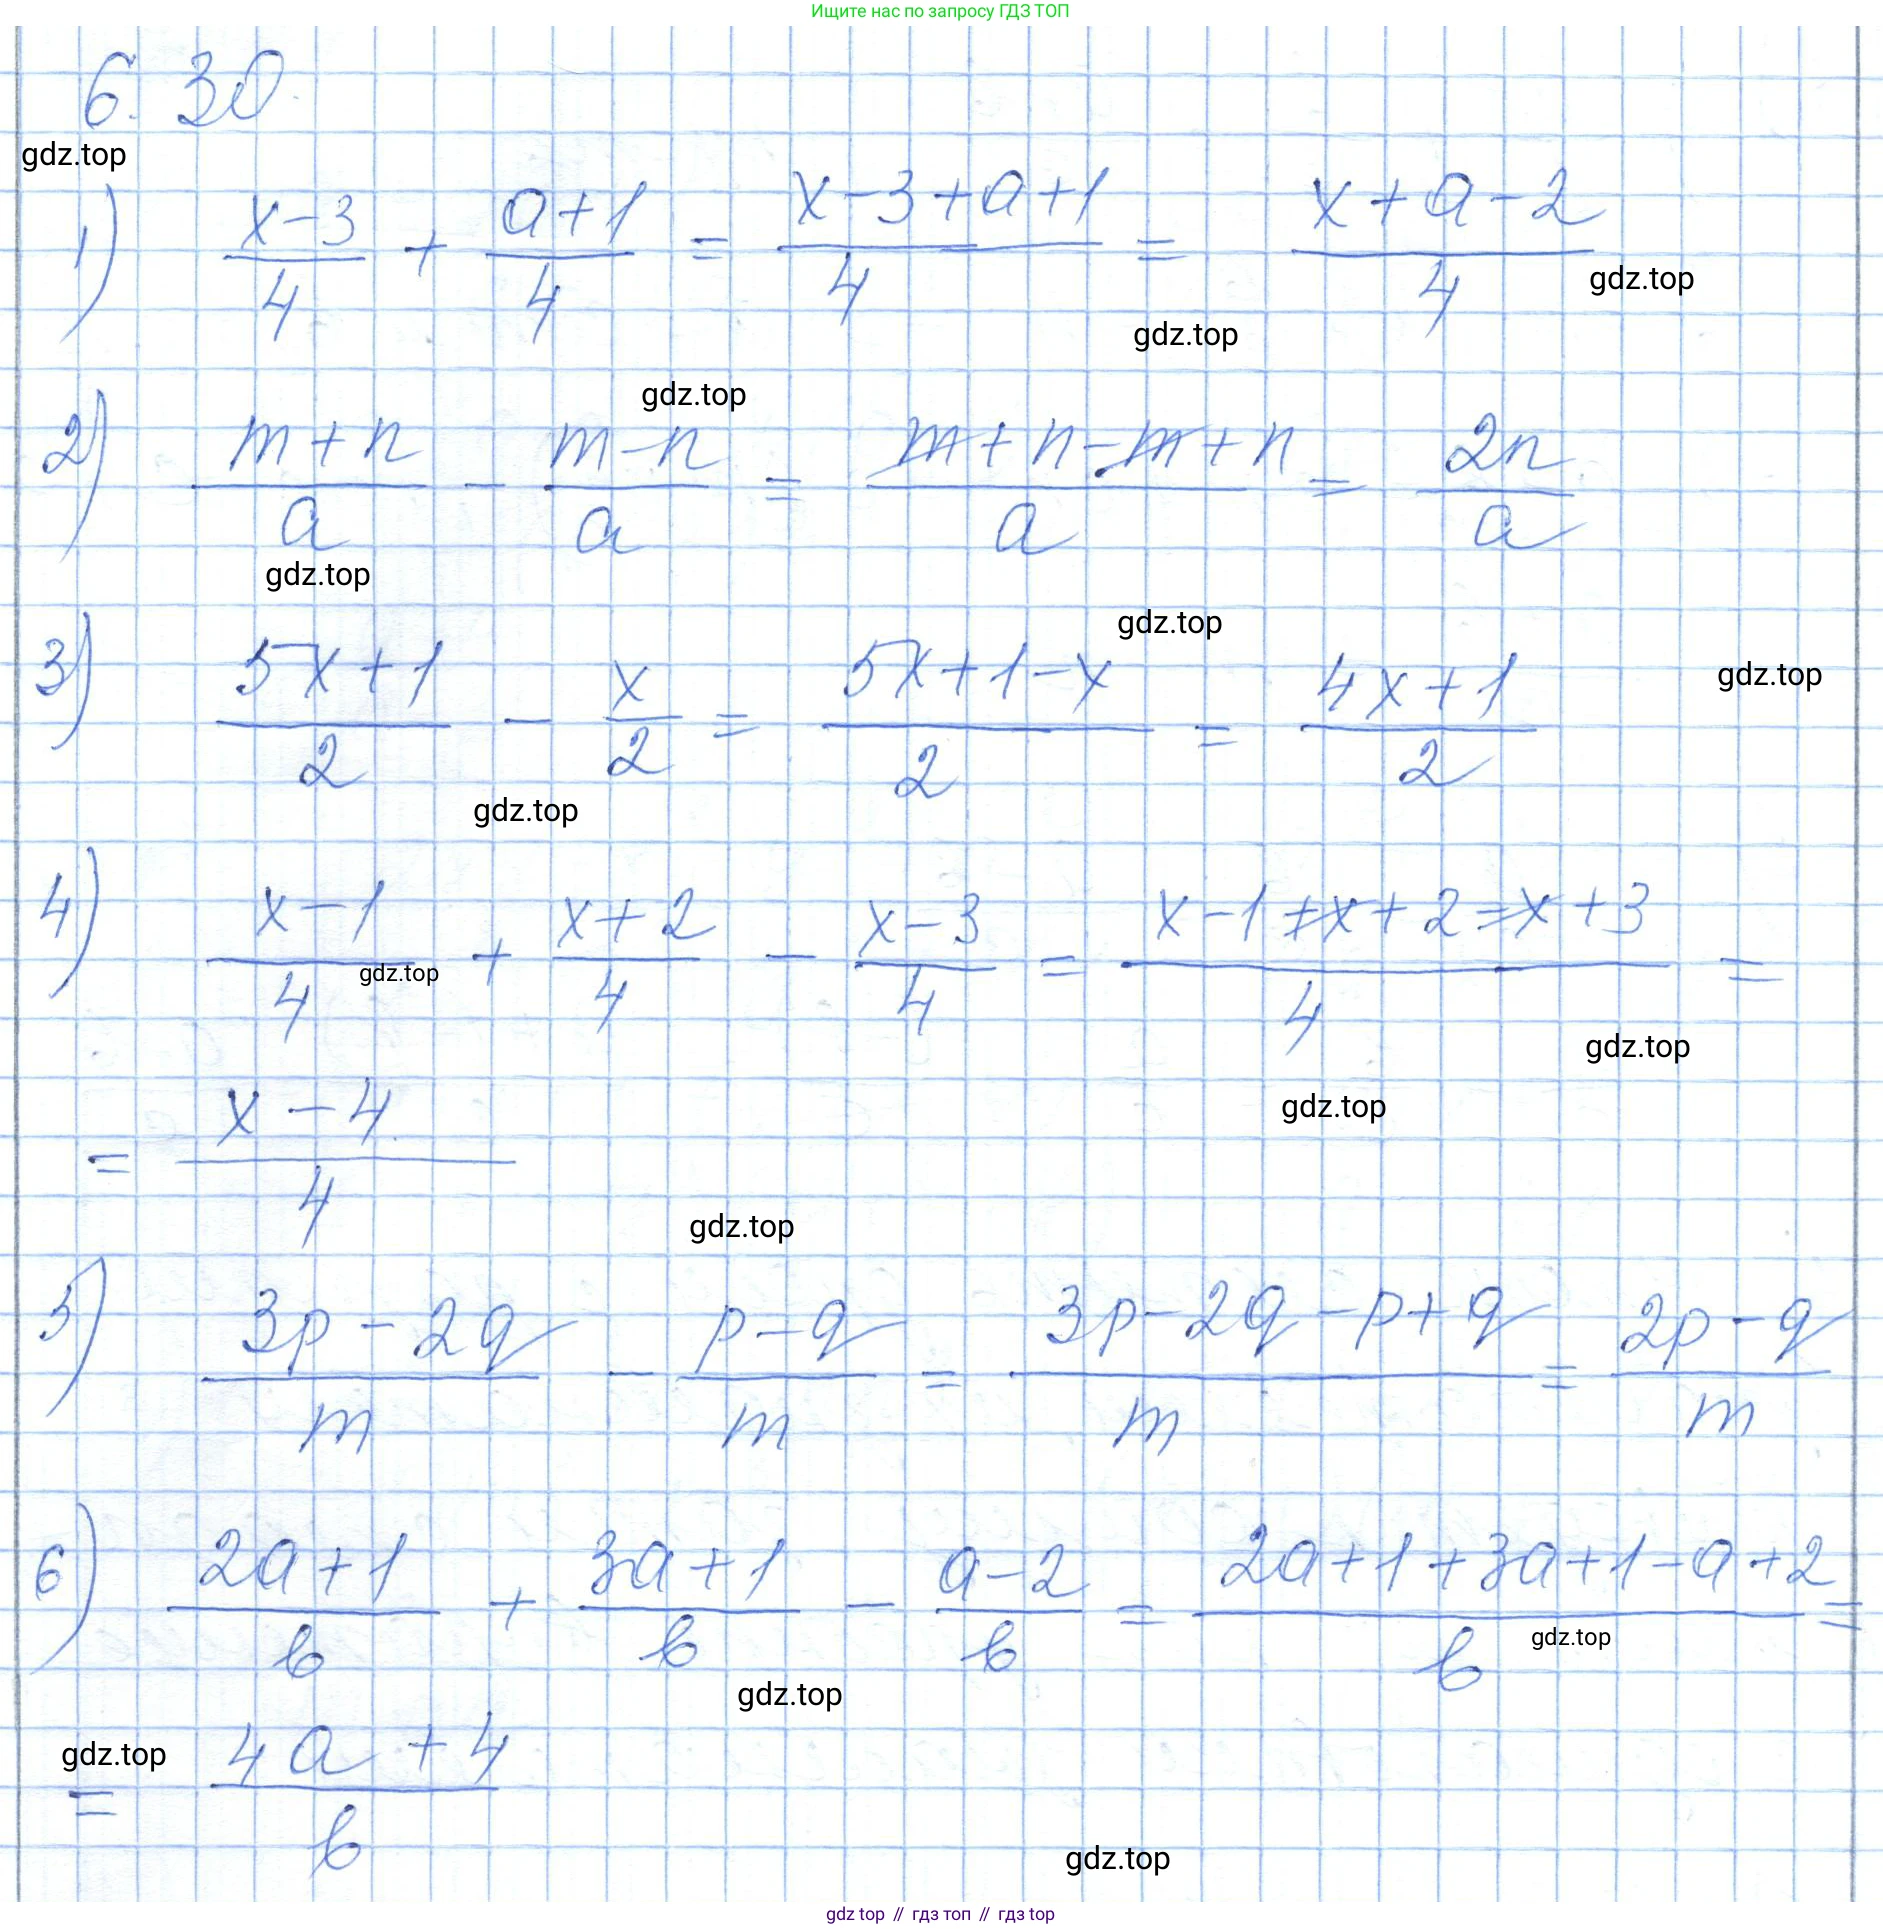 Ищите нас по запросу ГДЗ ТОП
6.30
gdz.top
1) (x-3)/4 + (a+1)/4 = (x-3+a+1)/4 = (x+a-2)/4
gdz.top
gdz.top
gdz.top
2) (m+n)/a - (m-n)/a = (m+n-m+n)/a = 2n/a
gdz.top
gdz.top
3) (5x+1)/2 - x/2 = (5x+1-x)/2 = (4x+1)/2
gdz.top
gdz.top
4) (x-1)/4 + (x+2)/4 - (x-3)/4 = (x-1+x+2-x+3)/4 =
gdz.top
gdz.top
gdz.top
= (x-4)/4
gdz.top
5) (3p-2q)/m - (p-q)/m = (3p-2q-p+q)/m = (2p-q)/m
6) (2a+1)/b + (3a+1)/b - (a-2)/b = (2a+1+3a+1-a+2)/b =
gdz.top
gdz.top
gdz.top
= (4a+4)/b
gdz.top
gdz top // гдз топ // гдз top